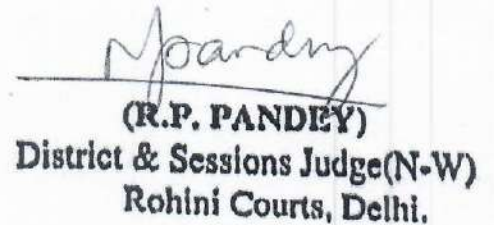 (R.P. PANDEY)
District & Sessions Judge(N-W)
Rohini Courts, Delhi.